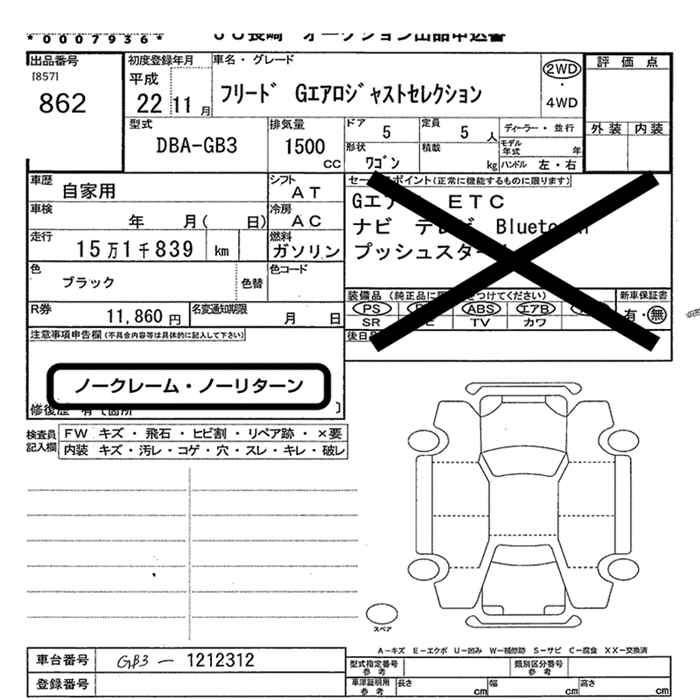 *0007936* JU長崎 オークション出品申込書
出品番号 初度登録年月 車名・グレード 評価点
[857]
862
平成 22 11月
フリード Gエアロジャストセレクション
2WD ・ 4WD
外装 内装
型式 排気量 ドア 定員 ディーラー・並行
DBA-GB3 1500 CC 5 5人
モデル年式 年
形状 積載
ワゴン kg ハンドル 左・右
車歴 シフト セールスポイント(正常に機能するものに限ります)
自家用 AT
Gエア ETC
車検 冷房
年 月( 日) AC
ナビ テレビ Bluetooth
走行 燃料
15万1千839 km ガソリン
プッシュスタート
色 色コード
ブラック 色替
装備品(純正品に 印をつけてください) 新車保証書
R券 名変通知期限
11,860円 月 日
PS ABS エアB
SR TV カワ
有・無
注意事項申告欄(不具合内容等は具体的に記入して下さい) 後日品
ノークレーム・ノーリターン
修復歴 有(箇所 ]
検査員記入欄
FW キズ・飛石・ヒビ割・リペア跡・×要
内装 キズ・汚レ・コゲ・穴・スレ・キレ・破レ
スペア
A-キズ E-エクボ U-凹み W-補修跡 S-サビ C-腐食 XX-交換済
車台番号 GB3-1212312
登録番号
型式指定番号 参考 類別区分番号 参考
車庫証明用 参考 長さ cm 幅 cm 高さ cm